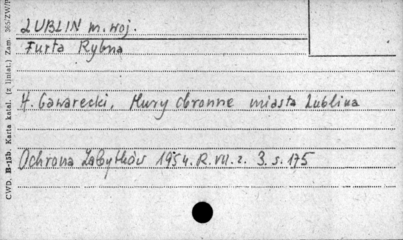 LUBLIN m. woj.
Furta Rybna
H. Gawarecki, Mury obronne miasta Lublina
Ochrona Zabytków 1954. R. VII. z. 3. s. 175
CWD. B-15b. Karta katal. (z liniat.) Zam. 365/ZW/